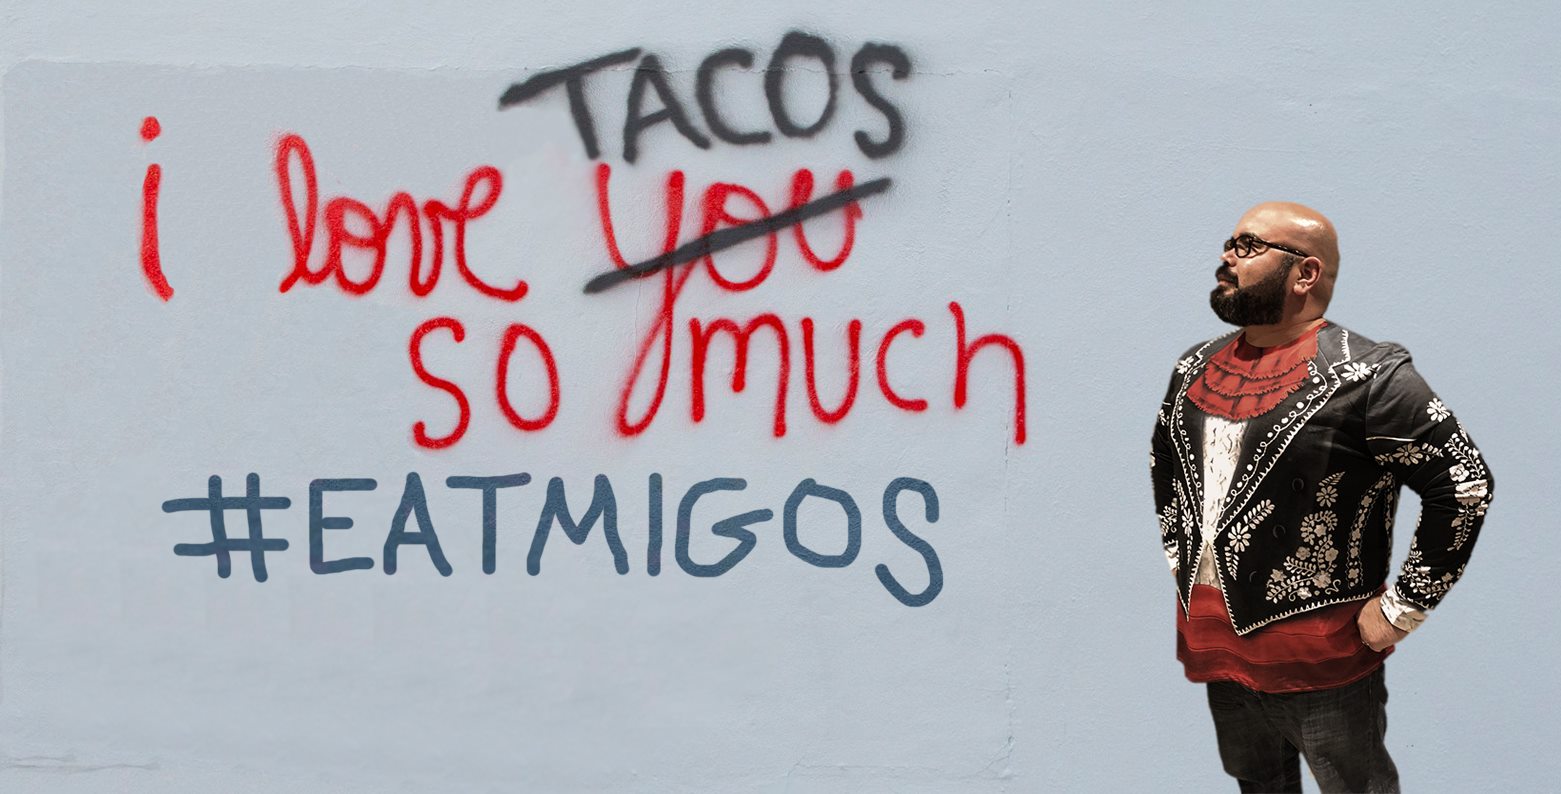 TACOS
i love you
so much
#EATMIGOS